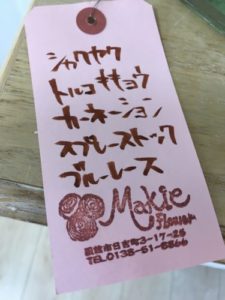 シャクヤク
トルコキキョウ
カーネーション
スプレーストック
ブルーレース
Makie
Flower
函館市日吉町3-17-25
TEL0138-51-8866